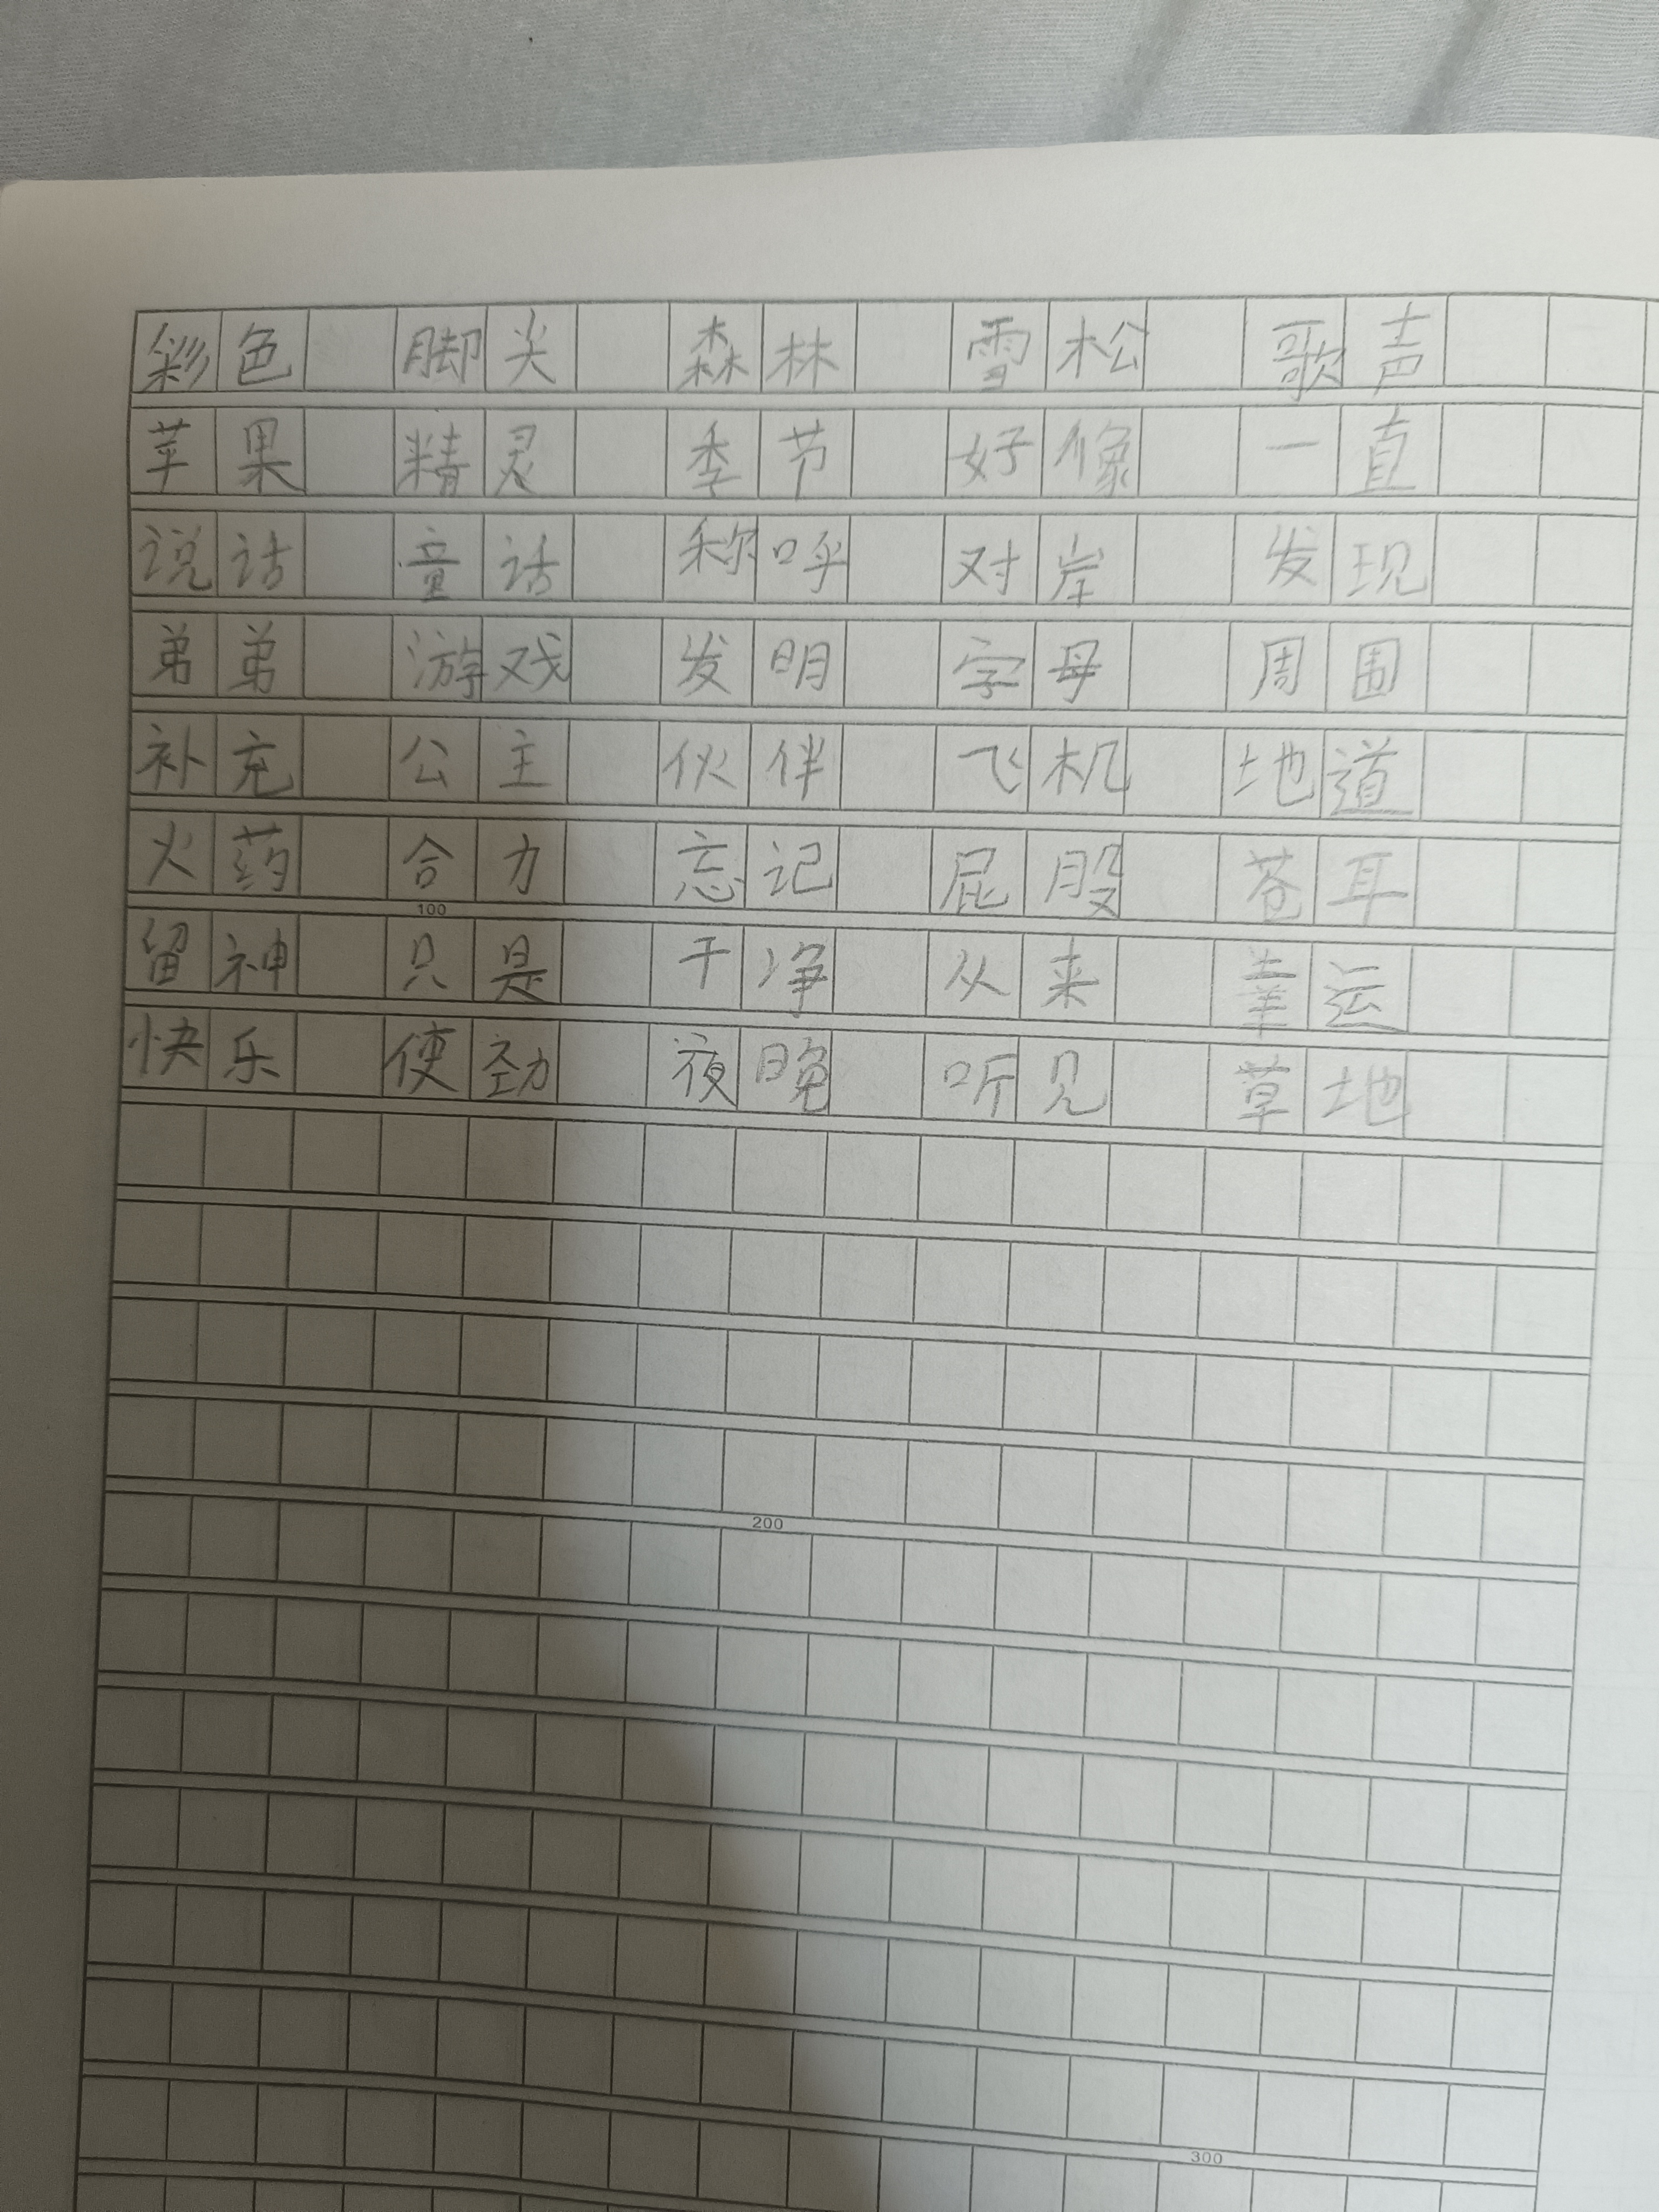 彩色 脚尖 森林 雪松 歌声
苹果 精灵 季节 好像 一直
说话 童话 称呼 对岸 发现
弟弟 游戏 发明 字母 周围
补充 公主 伙伴 飞机 地道
火药 合力 忘记 屁股 苍耳
100
留神 只是 干净 从来 幸运
快乐 使劲 夜晚 听见 草地
200
300